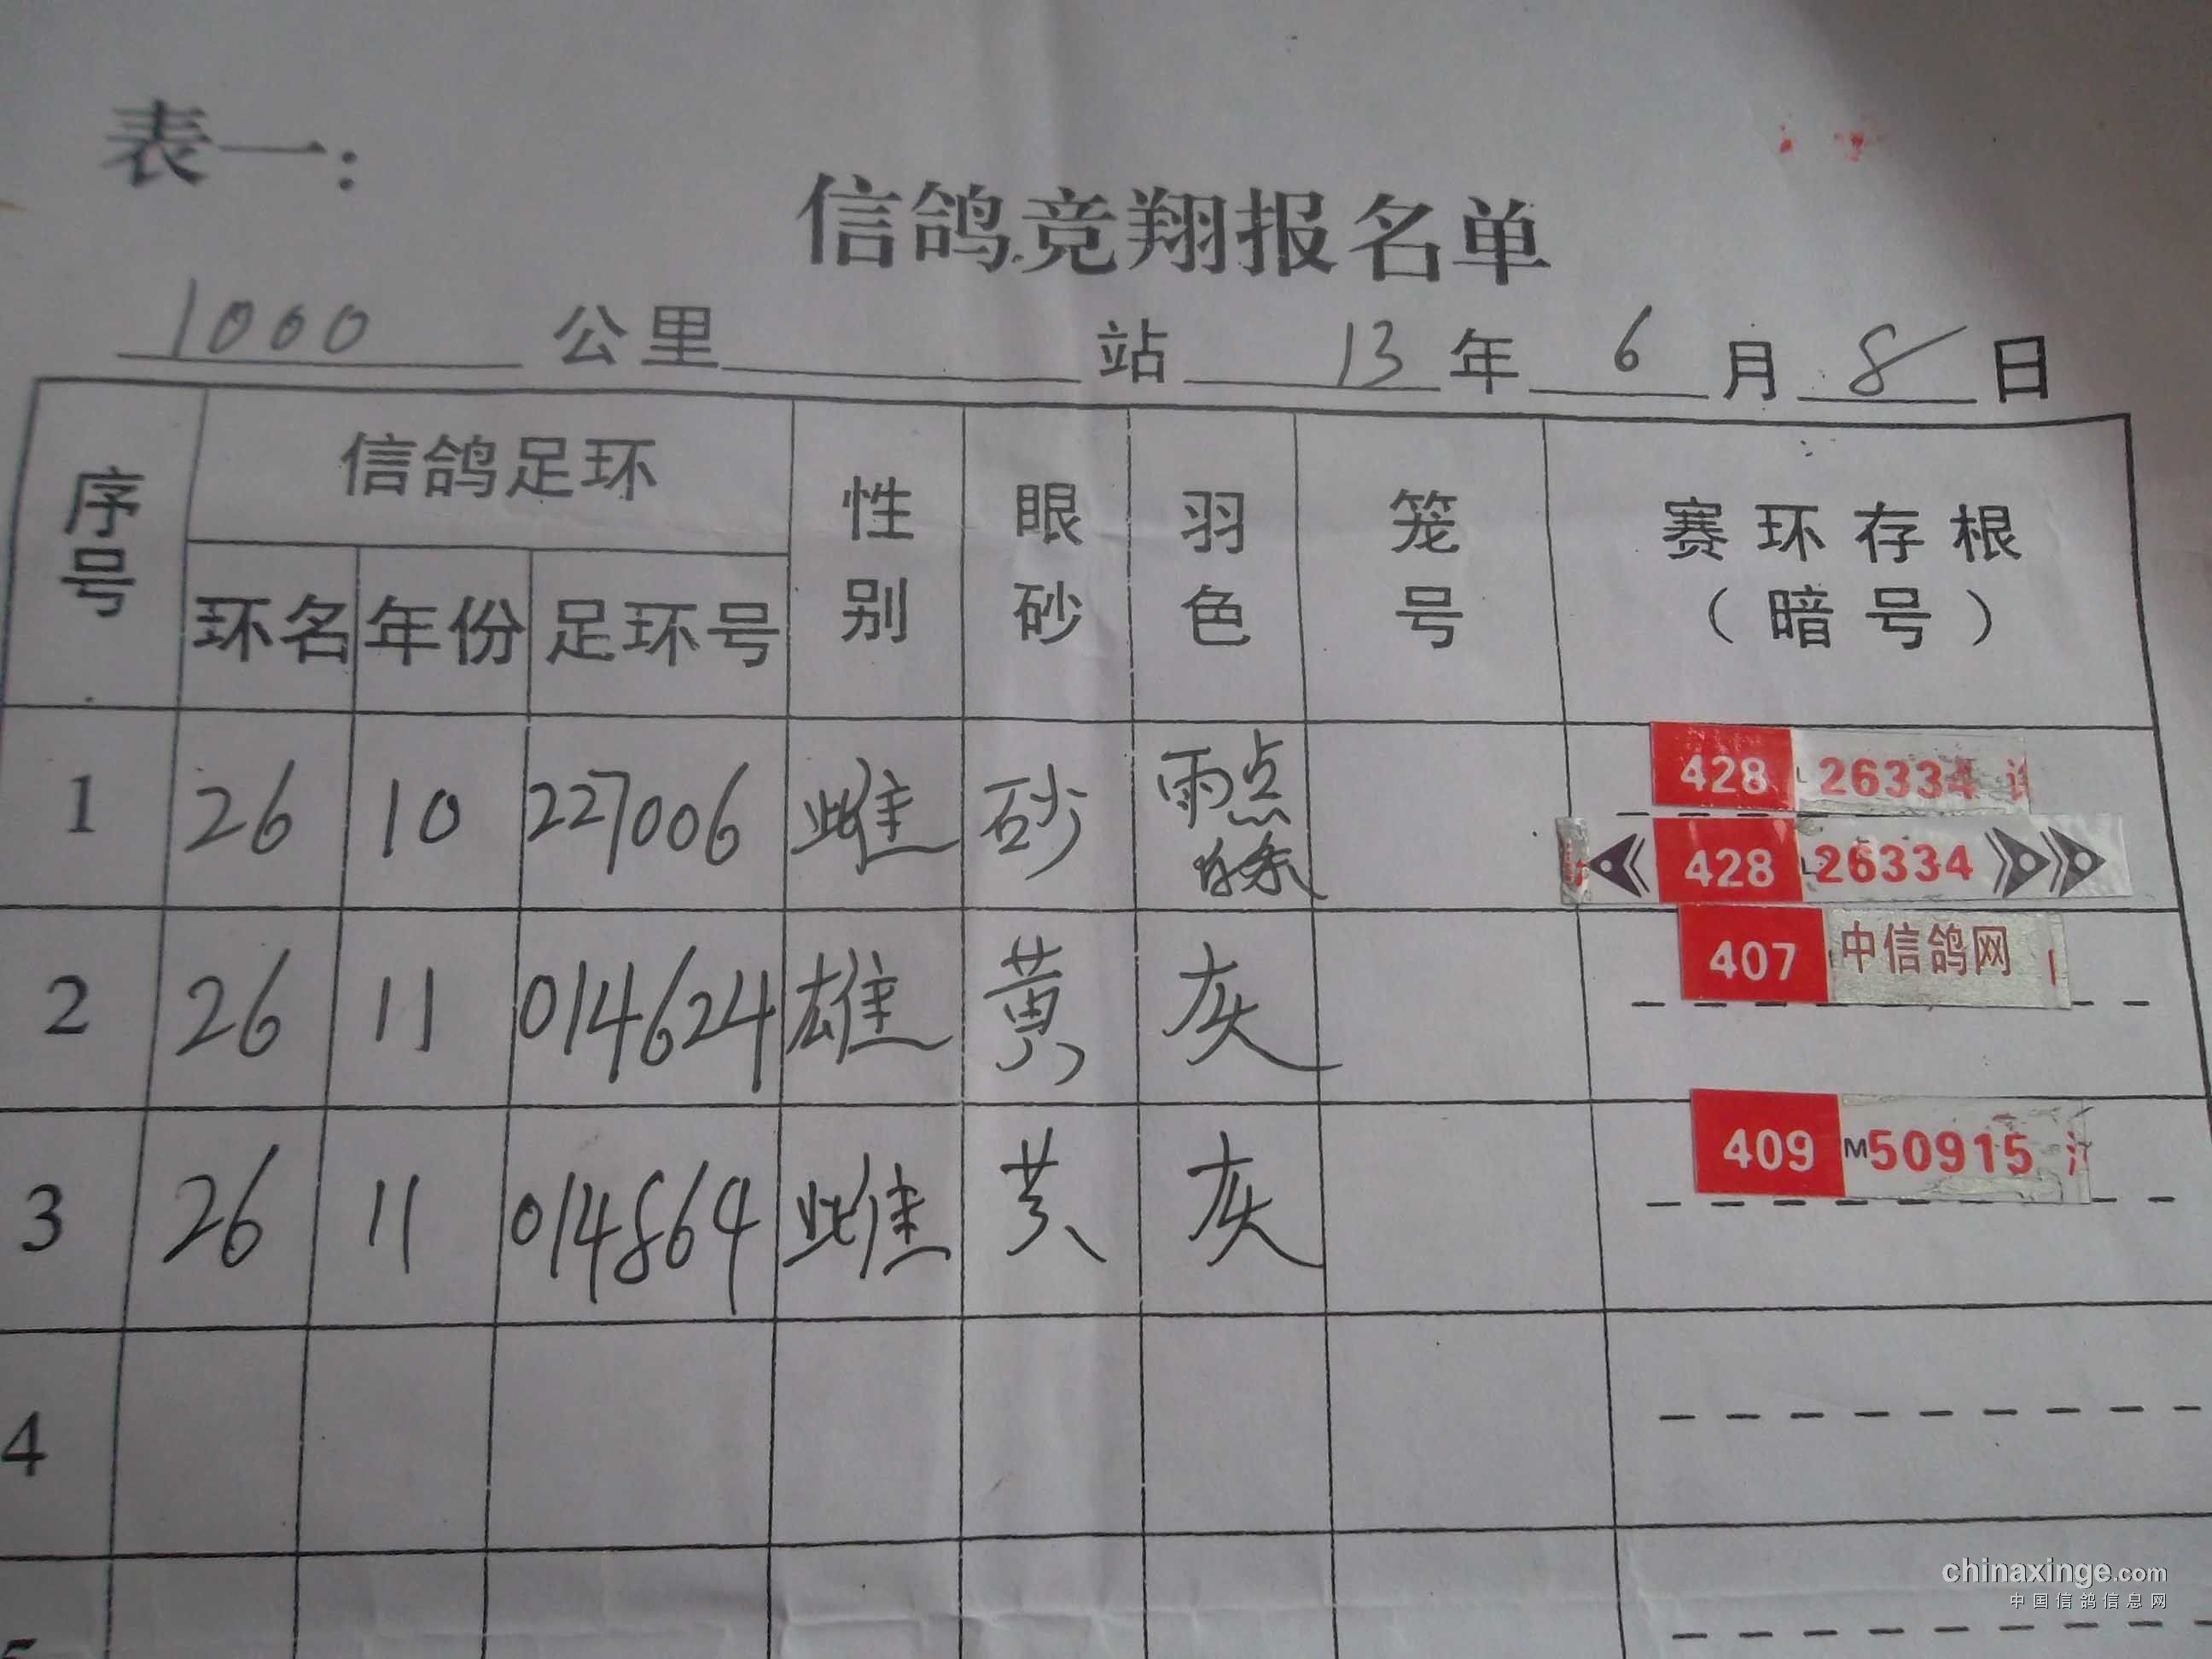 表一:
信鸽竞翔报名单
1000 公里 站 13 年 6 月 8 日
序号 信鸽足环 性别 眼砂 羽色 笼号 赛环存根（暗号）
环名 年份 足环号
1 26 10 227006 雌 砂 雨点 428 L26334
428 L26334
2 26 11 014624 雄 黄 灰 407 中信鸽网
3 26 11 014864 雌 黄 灰 409 M50915
4
5
chinaxinge.com
中国信鸽信息网